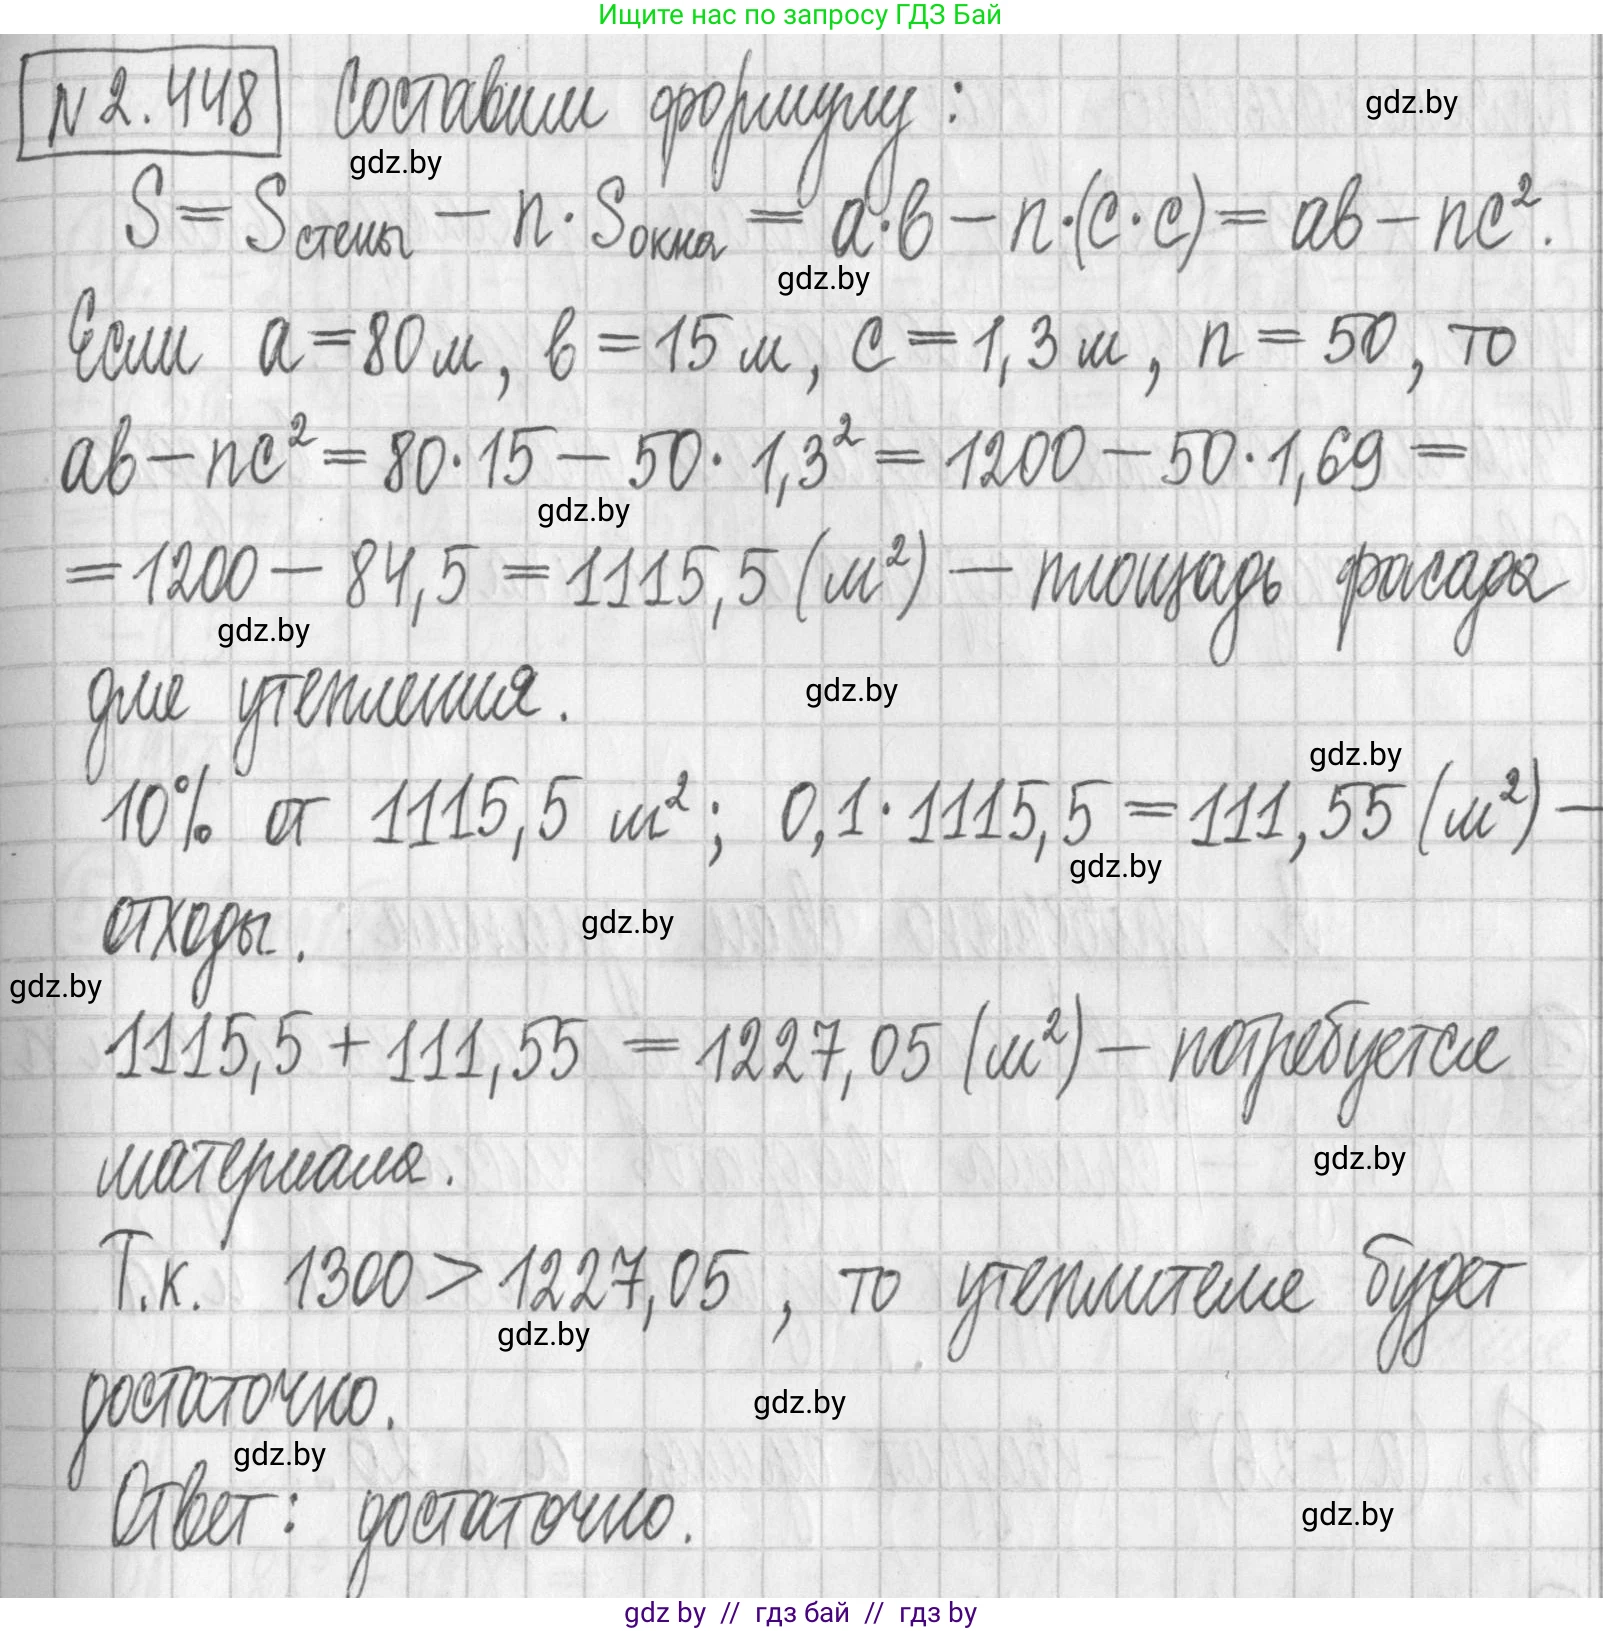 Ищите нас по запросу ГДЗ Бай
№ 2.448 Составим формулу:
gdz.by
gdz.by
S = Sстены − n · Sокна = a·в − n·(с·с) = aв − nс².
gdz.by
Если a = 80 м, в = 15 м, с = 1,3 м, n = 50, то
aв − nс² = 80·15 − 50 · 1,3² = 1200 − 50·1,69 =
gdz.by
= 1200 − 84,5 = 1115,5 (м²) − площадь фасада
gdz.by
для утепления.
gdz.by
gdz.by
10% от 1115,5 м²; 0,1·1115,5 = 111,55 (м²) −
gdz.by
отходы.
gdz.by
gdz.by
1115,5 + 111,55 = 1227,05 (м²) − потребуется
материала.
gdz.by
Т.к. 1300 > 1227,05, то утеплителя будет
gdz.by
достаточно.
gdz.by
gdz.by
Ответ: достаточно.
gdz.by
gdz by // гдз бай // гдз by